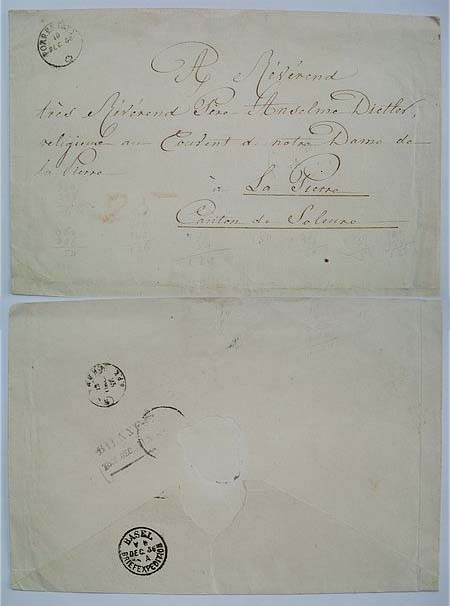 A Révérend
très Révérend Père Anselme Dietler,
religieux au Couvent de notre Dame de
la Pierre
à La Pierre
Canton de Soleure
DEC
BASEL
DEC. 56
A
BRIEFEXPEDITION